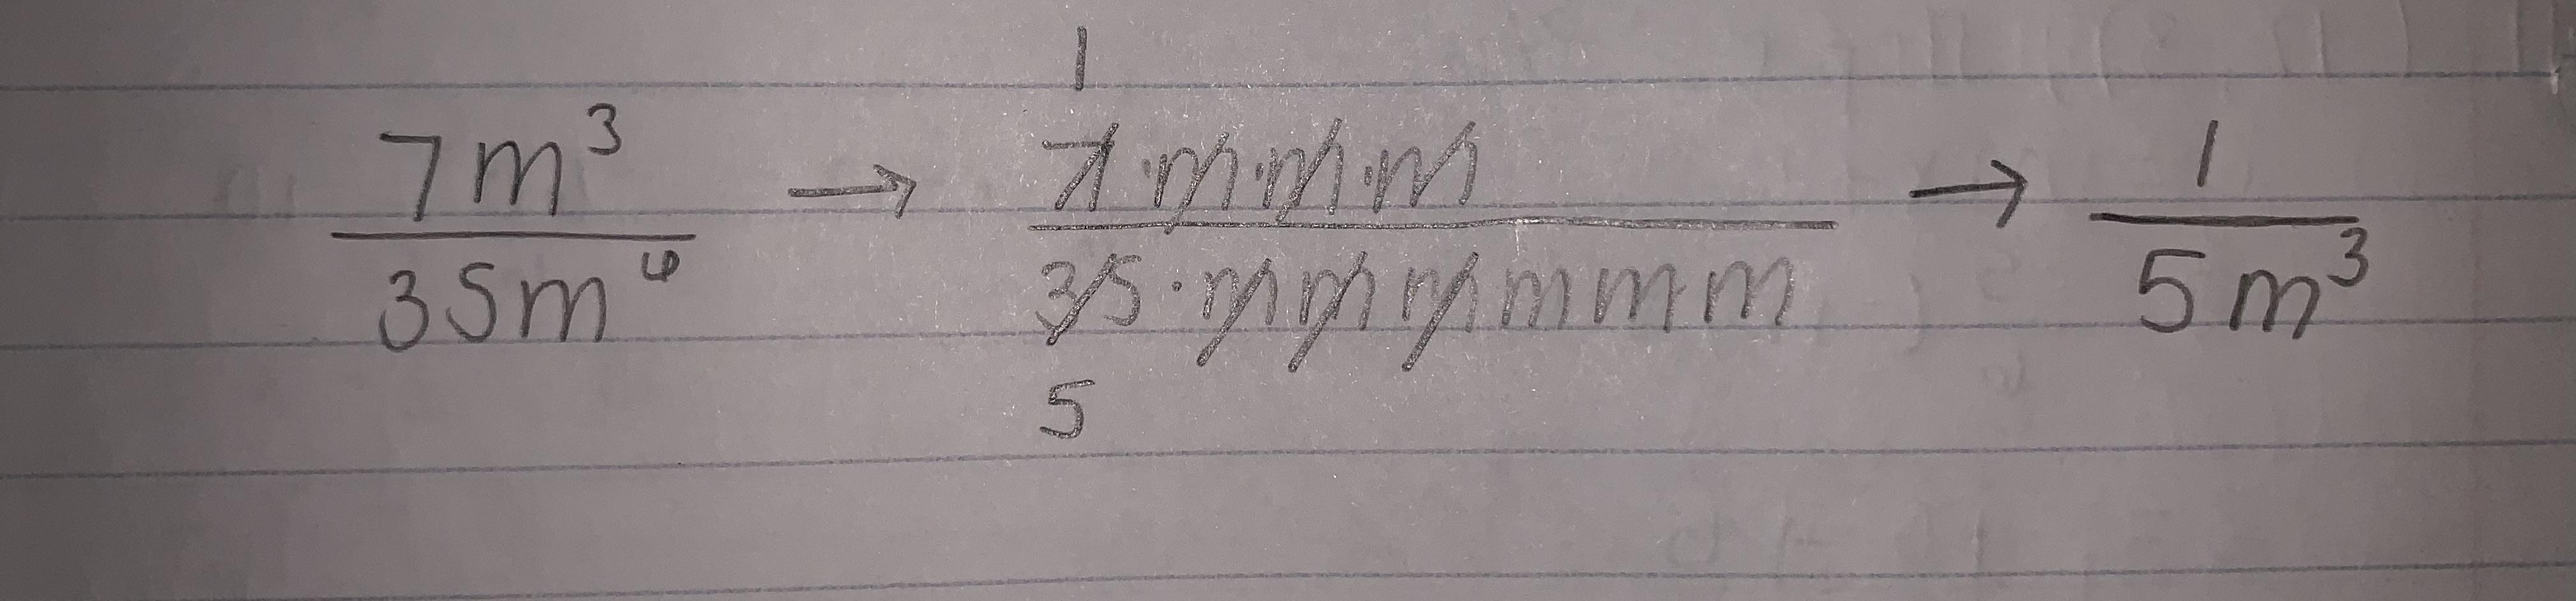 7m³/35m⁶ → 1 7·m·m·m/35·m m m m m m 5 → 1/5m³